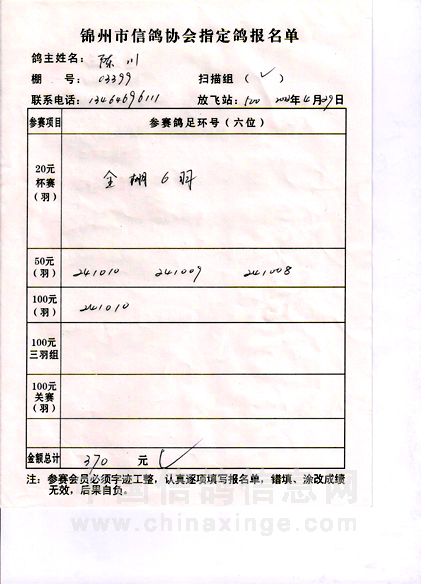 锦州市信鸽协会指定鸽报名单
鸽主姓名: 陈川
棚 号: 03399 扫描组 (✓)
联系电话: 13464696111 放飞站: 年4月29日
参赛项目 参赛鸽足环号(六位)
20元
杯赛
(羽)
全棚6羽
50元
(羽)
241010 241009 241008
100元
(羽)
241010
100元
三羽组
100元
关赛
(羽)
金额总计 370 元 ✓
注: 参赛会员必须字迹工整, 认真逐项填写报名单, 错填、涂改成绩
无效, 后果自负.
中国信鸽信息网
www.chinaxinge.com